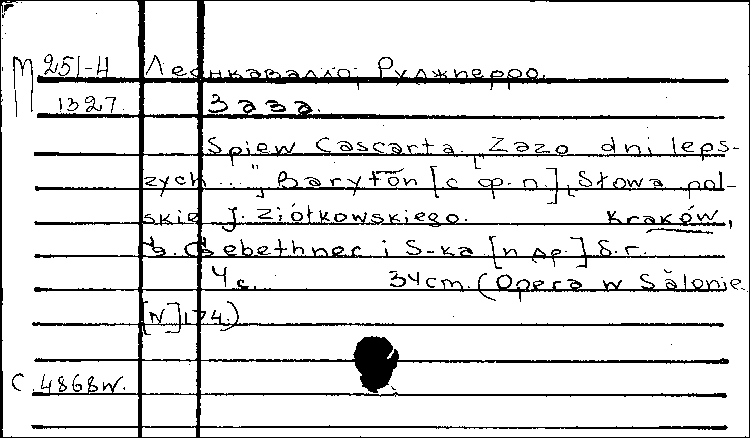 М 251-4 Леонкавалло, Руджиерро.
1327 Заза.
Spiew Cascarta „Zazo dni leps-
zych ...", Baryton [с ф.-п.], Słowa pol-
skie J. Ziółkowskiego. Kraków,
G. Gebethner i S-ka [и др.] S. г.
4 с. 34 cm. (Opera w Salonie
[N] 174.)
C. 4868w.